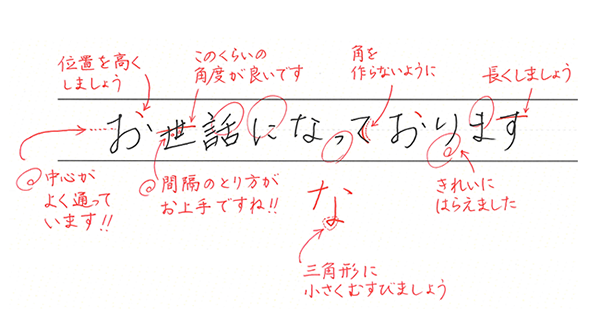 位置を高く
しましょう
このくらいの
角度が良いです
角を
作らないように
長くしましょう
お世話になっております
◎中心が
よく通って
います!!
◎間隔のとり方が
お上手ですね!!
な
きれいに
はらえました
三角形に
小さくむすびましょう